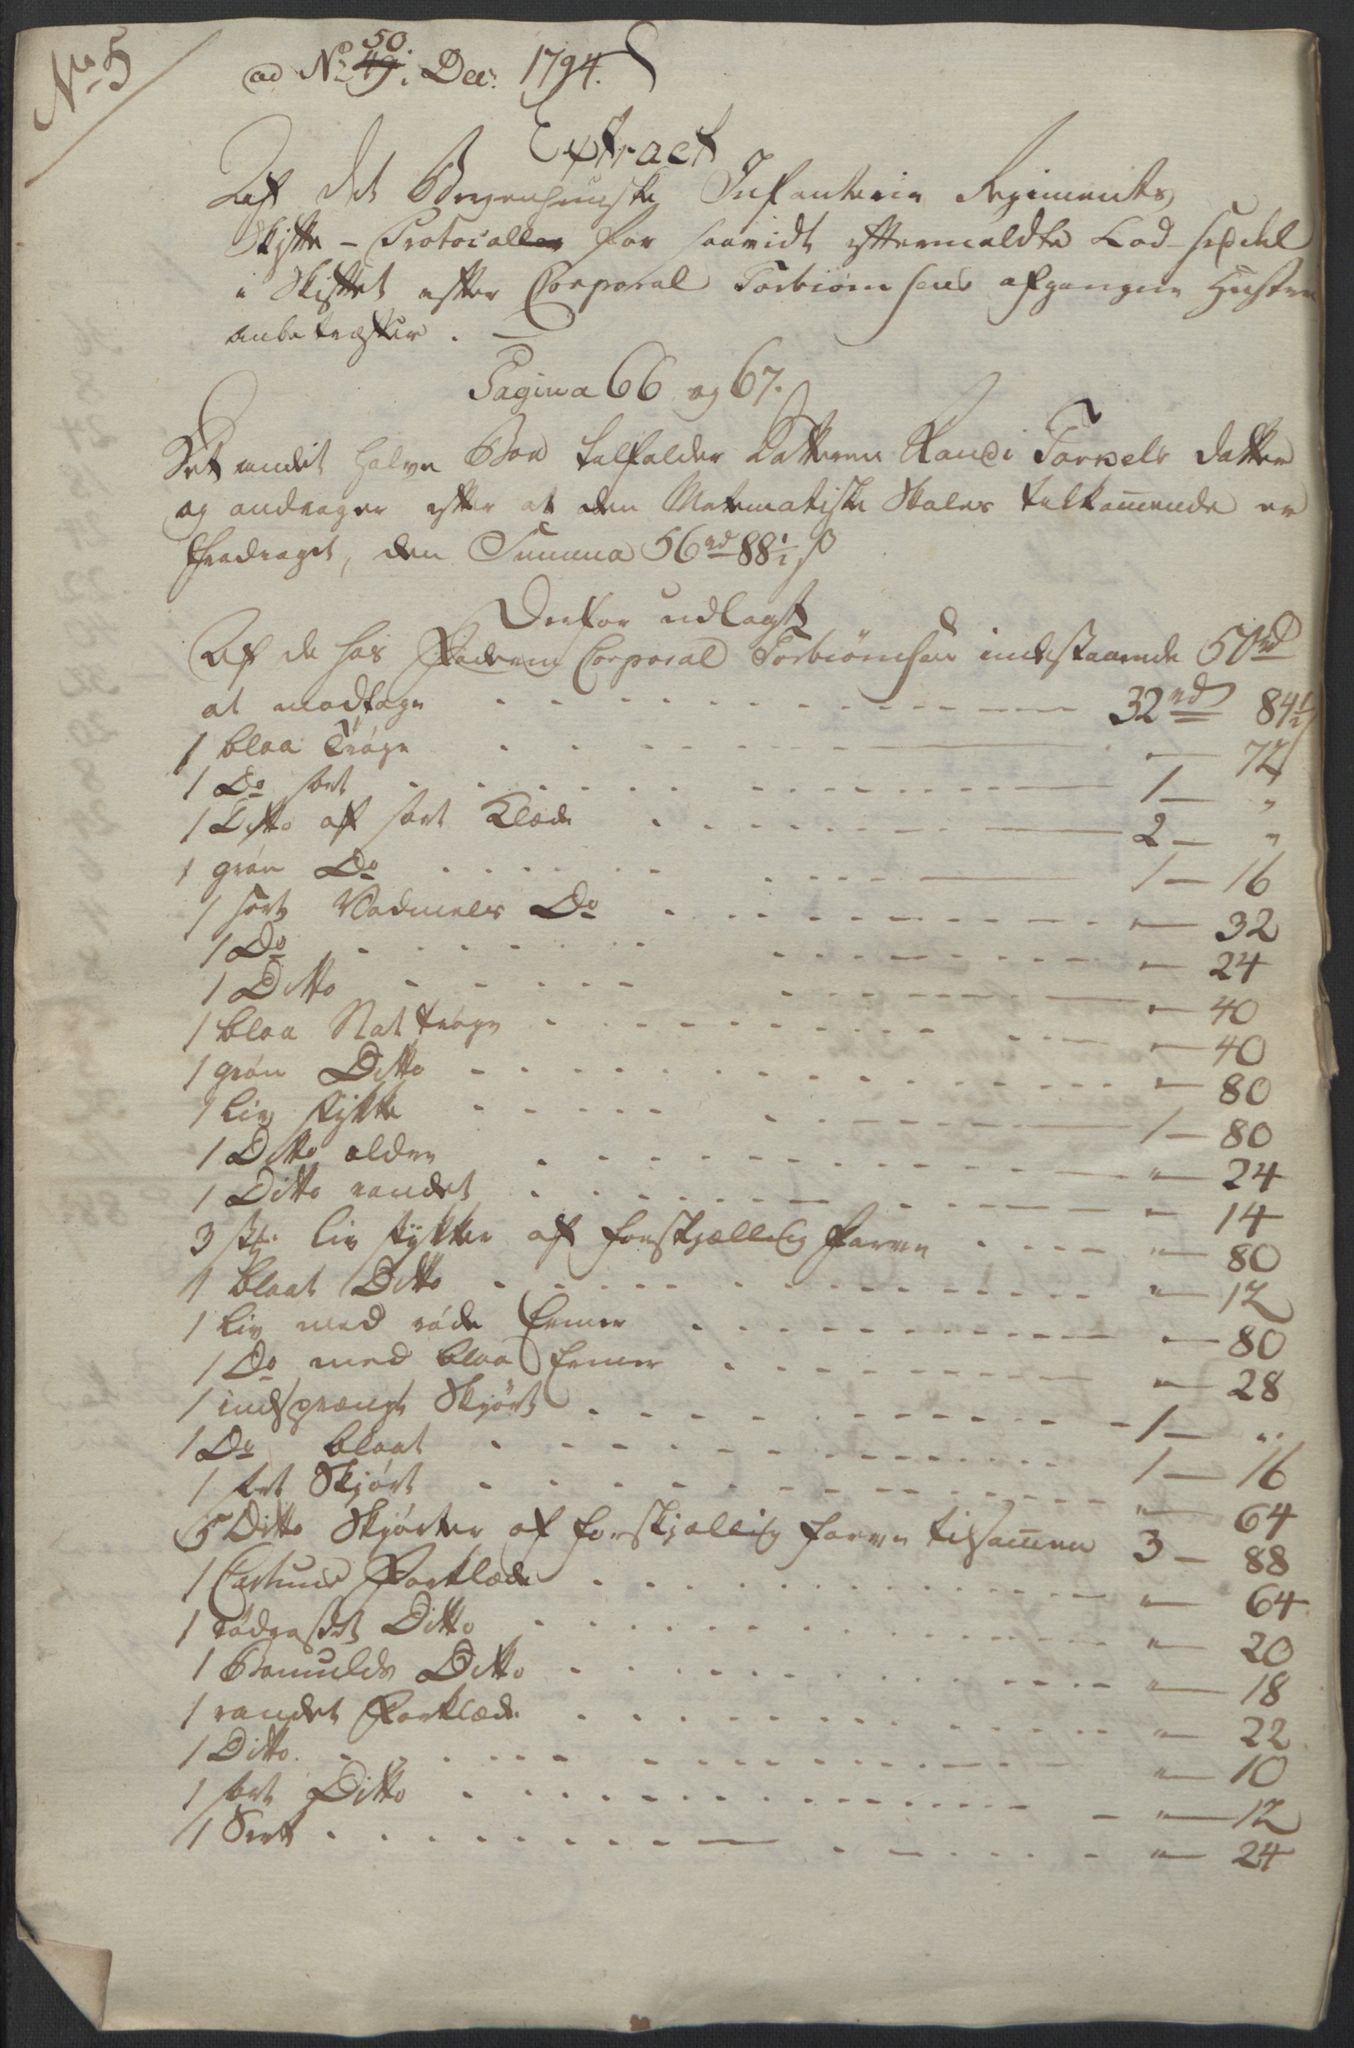 No 5
50
ad No 49 i Dec: 1794.
Extract
Af det Bergenhuusske Infanterie Regiments
Skifte-Protocoller for saavidt eftermeldte Lod-seddel
i Skiftet efter Corporal Torbiørnsens afgangne Hustru
anbetræffer. —
Pagina 66 og 67.
Det andet halve Boe tilfalder Datteren Randi Torkels datter
og andrager efter at den Matematiske Skoles tilkommende er
fradraget, den Summa 56 rd 88½ s
Derfor udlagt
Af de hos Faderen Corporal Torbiørnsen indestaaende 50 rd
at modtage 32 rd 84½ s
1 blaa Trøye — 72
1 Do sort 1 — "
1 Ditto af sort Klæde 2 — "
1 grøn Do 1 — 16
1 sort Vadmels Do " — 32
1 Do " — 24
1 Ditto " — 40
1 blaa Nat trøye " — 40
1 grøn Ditto " — 80
1 Liv stykke 1 — 80
1 Ditto ældre " — 24
1 Ditto randet " — 14
3 st: Liv stykker af forskjællig Farve " — 80
1 blaat Ditto " — 12
1 Liv med røde Ermer " — 80
1 Do med blaa Ermer " — 28
1 indsprængt Skjørt 1 — "
1 Do blaat 1 — 16
1 sort Skjørt " — 64
5 Ditto Skjørter af forskjællig farve tilsammen 3 — 88
1 Cartuns Forklæde " — 64
1 rødrasket Ditto " — 20
1 Bomulds Ditto " — 18
1 randet Forklæde " — 22
1 Ditto " — 10
1 sort Ditto " — 12
1 " — 24